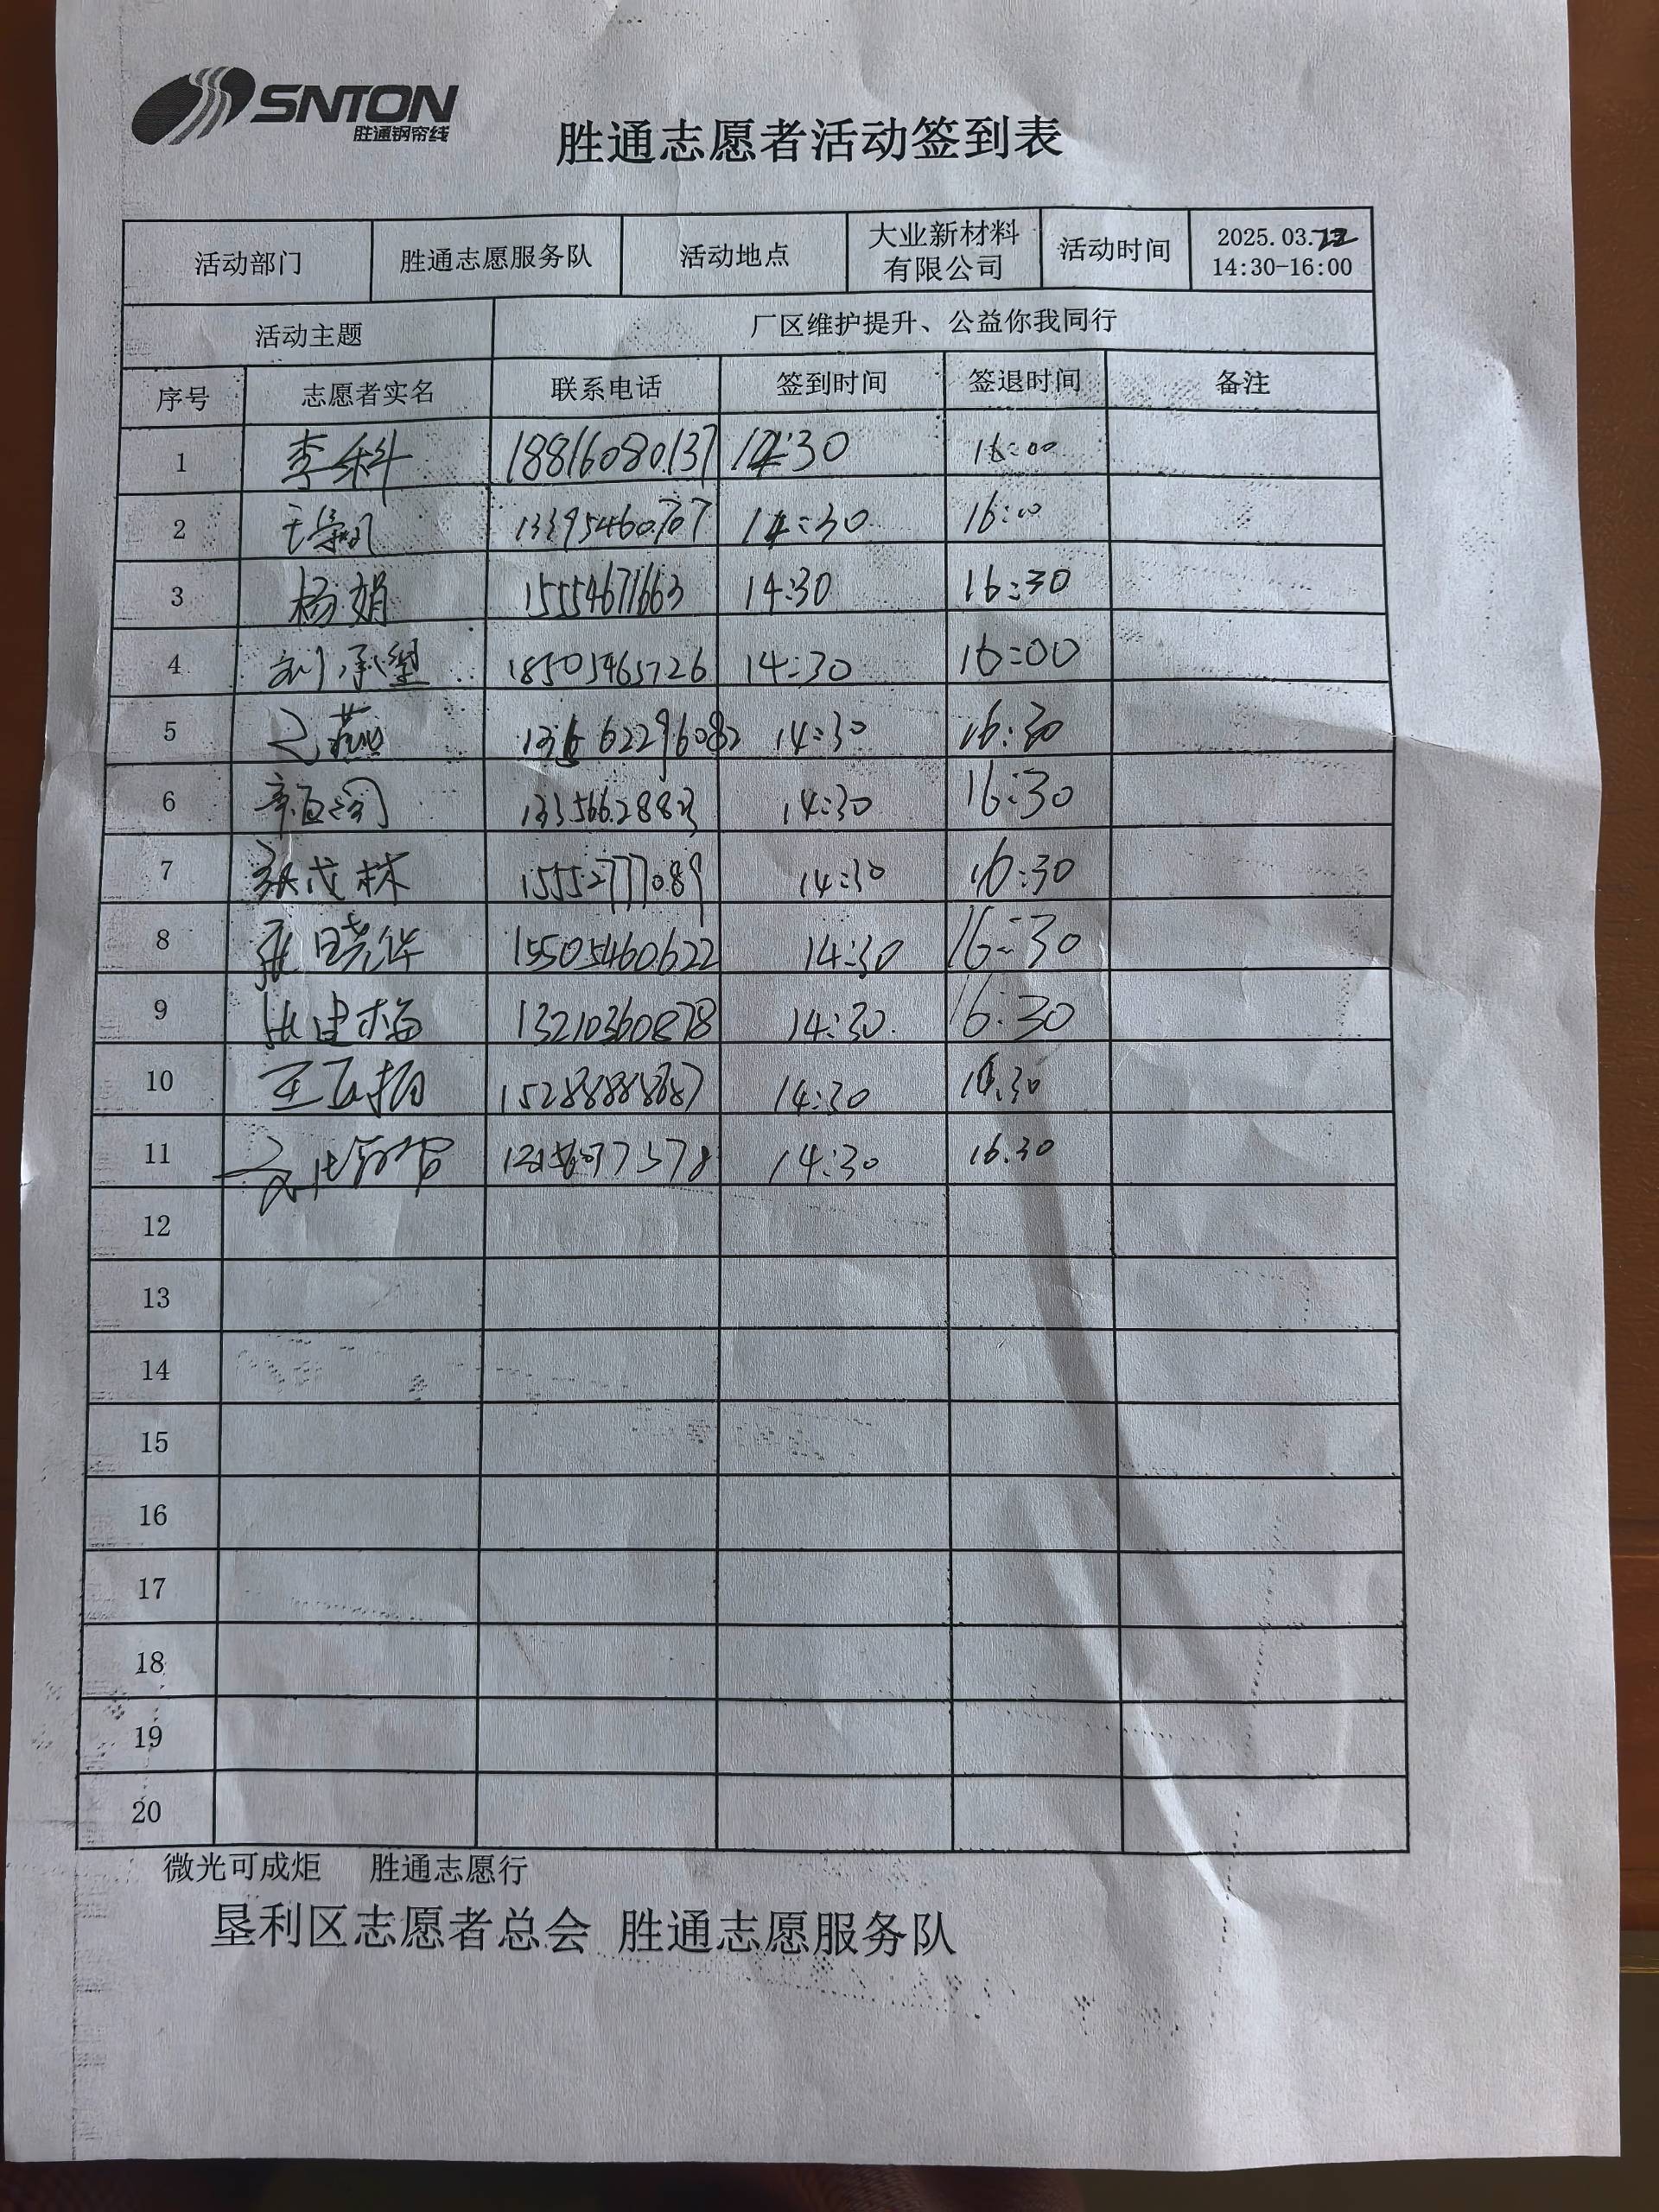 SNTON
胜通钢帘线
胜通志愿者活动签到表
活动部门 胜通志愿服务队 活动地点 大业新材料有限公司 活动时间 2025.03.22 14:30-16:00
活动主题 厂区维护提升、公益你我同行
序号 志愿者实名 联系电话 签到时间 签退时间 备注
1 李科 18816080137 14:30 16:00
2 13395460707 14:30 16:00
3 杨娟 15554671663 14:30 16:30
4 刘承玺 18505465726 14:30 16:00
5 14:30 16:30
6 14:30 16:30
7 张成林 15552777089 14:30 16:30
8 张晓华 15505460622 14:30 16:30
9 张建梅 13210360878 14:30 16:30
10 14:30 16:30
11 14:30 16.30
12
13
14
15
16
17
18
19
20
微光可成炬 胜通志愿行
垦利区志愿者总会 胜通志愿服务队